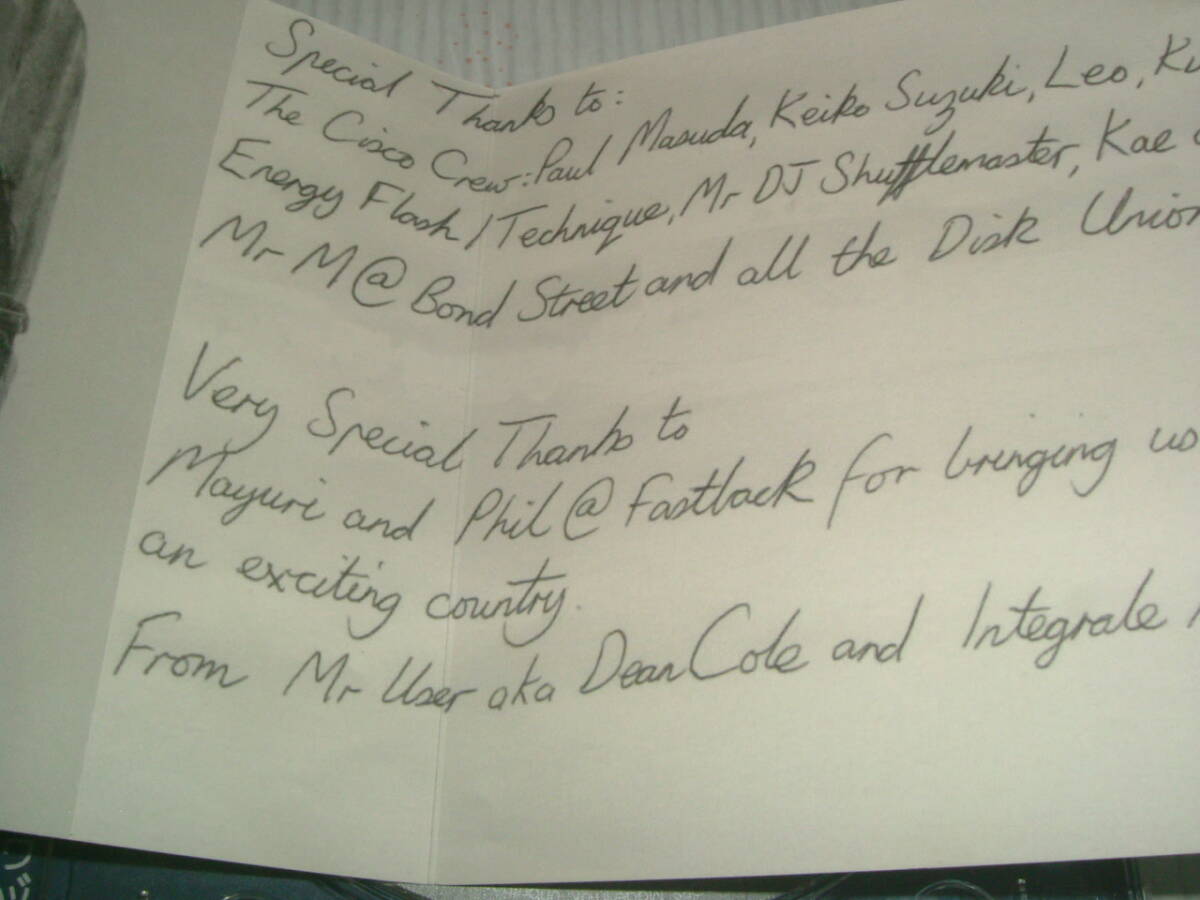 Special Thanks to:
The Cisco Crew: Paul Masuda, Keiko Suzuki, Leo,
Energy Flash / Technique, Mr DJ Shufflemaster, Kae
Mr M @ Bond Street and all the Disk Union
Very Special Thanks to
Mayuri and Phil @ Fastback for bringing us
an exciting country.
From Mr User aka Dean Cole and Integrale